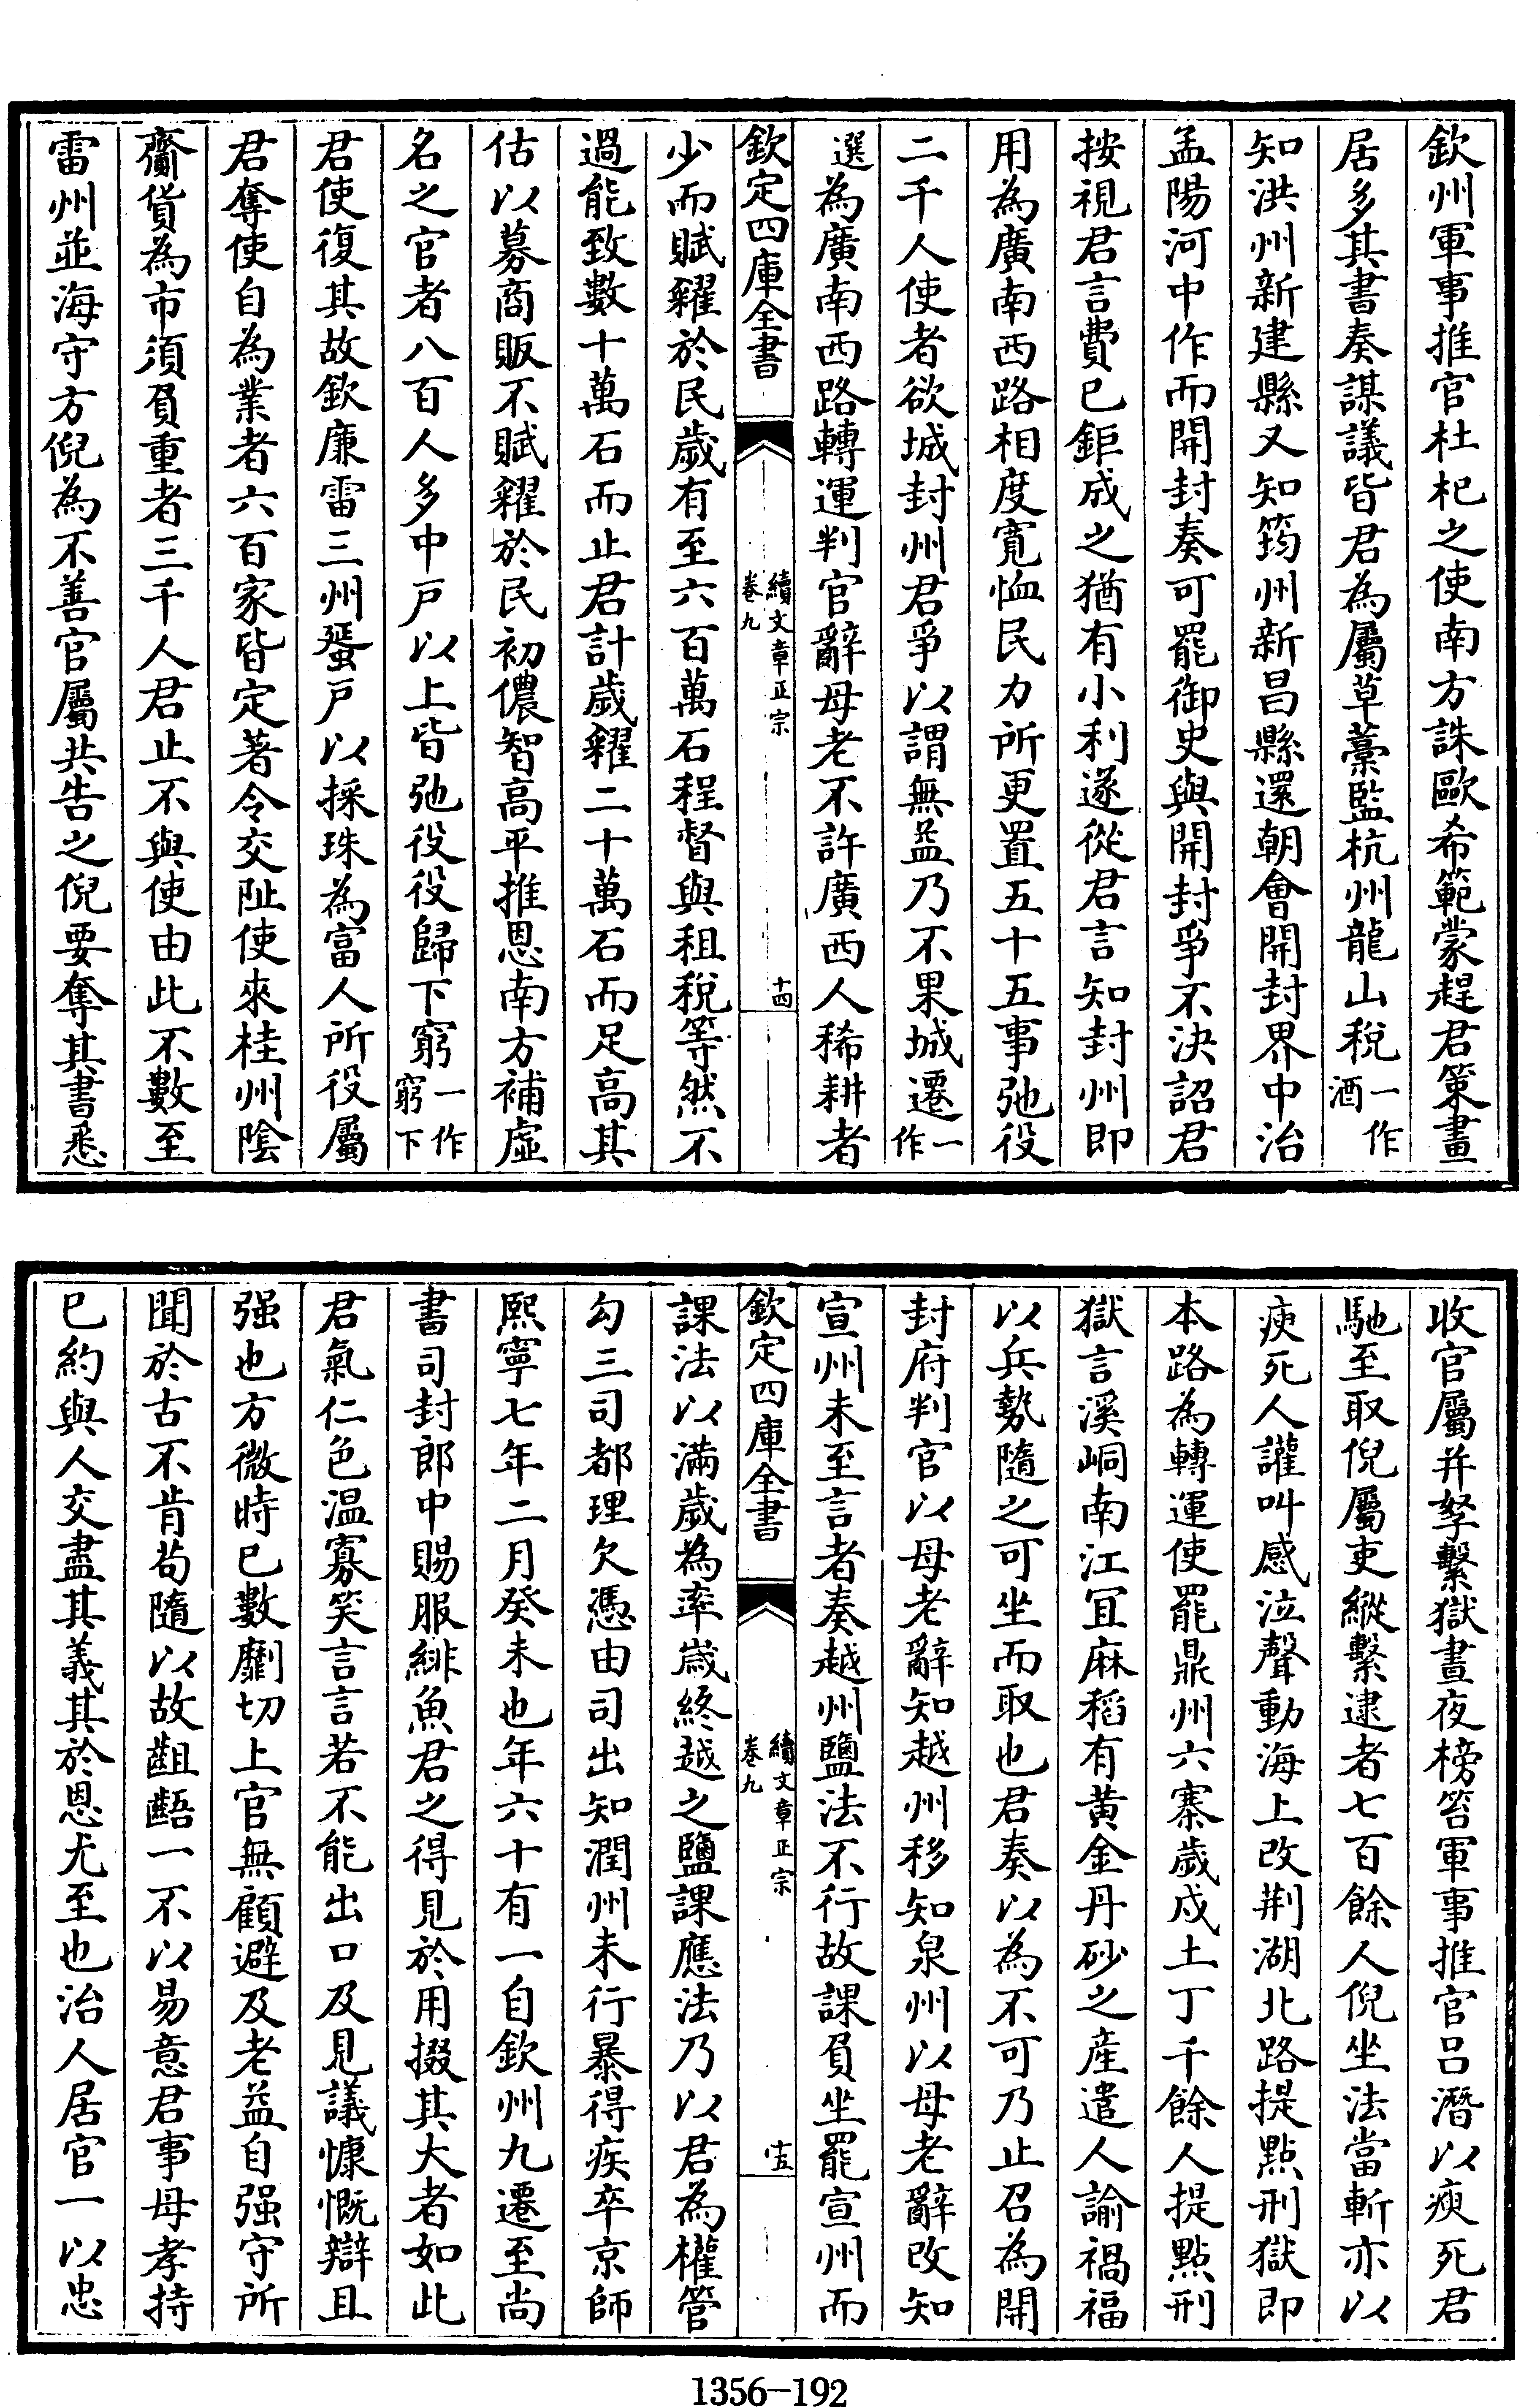 欽州軍事推官杜杞之使南方誅歐希範蒙趕君策畫
居多其書奏謀議皆君為屬草藁監杭州龍山税一作酒
知洪州新建縣又知筠州新昌縣還朝會開封界中治
孟陽河中作而開封奏可罷御史與開封爭不決詔君
按視君言費已鉅成之猶有小利遂從君言知封州即
用為廣南西路相度寛恤民力所更置五十五事弛役
二千人使者欲城封州君爭以謂無益乃不果城遷一作
選為廣南西路轉運判官辭母老不許廣西人稀耕者
欽定四庫全書
續文章正宗
卷九
十四
少而賦糴於民歲有至六百萬石程督與租税等然不
過能致數十萬石而止君計歲糴二十萬石而足高其
估以募商販不賦糴於民初儂智高平推恩南方補虛
名之官者八百人多中戸以上皆弛役役歸下窮一作窮下
君使復其故欽廉雷三州蜑戸以採珠為富人所役屬
君奪使自為業者六百家皆定著令交阯使來桂州陰
齎貨為市須負重者三千人君止不與使由此不數至
雷州並海守方倪為不善官屬共告之倪要奪其書悉
收官屬并孥繫獄晝夜榜笞軍事推官吕潛以瘐死君
馳至取倪屬吏縱繫逮者七百餘人倪坐法當斬亦以
瘐死人讙叫感泣聲動海上改荆湖北路提點刑獄即
本路為轉運使罷鼎州六寨歲戍土丁千餘人提點刑
獄言溪峒南江宜麻稻有黄金丹砂之産遣人諭禍福
以兵勢隨之可坐而取也君奏以為不可乃止召為開
封府判官以母老辭知越州移知泉州以母老辭改知
宣州未至言者奏越州鹽法不行故課負坐罷宣州而
欽定四庫全書
續文章正宗
卷九
十五
課法以滿歲為率歲終越之鹽課應法乃以君為權管
勾三司都理欠憑由司出知潤州未行暴得疾卒京師
熙寧七年二月癸未也年六十有一自欽州九遷至尚
書司封郎中賜服緋魚君之得見於用掇其大者如此
君氣仁色温寡笑言言若不能出口及見議慷慨辯且
强也方微時已數劘切上官無顧避及老益自强守所
聞於古不肯苟隨以故齟齬一不以易意君事母孝持
已約與人交盡其義其於恩尤至也治人居官一以忠
1356—192